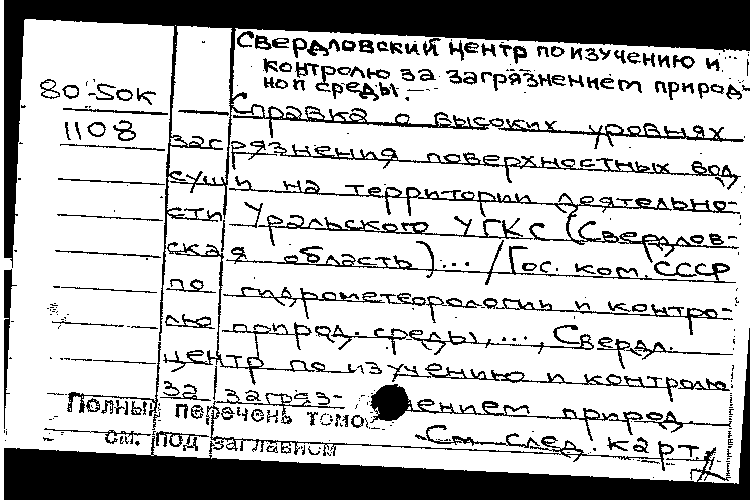 Свердловский центр по изучению и
контролю за загрязнением природ-
ной среды.
80-50к
1108
Справка о высоких уровнях
загрязнения поверхностных вод
суши на территории деятельно-
сти Уральского УГКС (Свердлов-
ская область)... /Гос. ком. СССР
по гидрометеорологии и контро-
лю природ. среды,..., Свердл.
центр по изучению и контролю
за загряз- нением природ.
Полный перечень томов
см. под заглавием
См. след. карт.